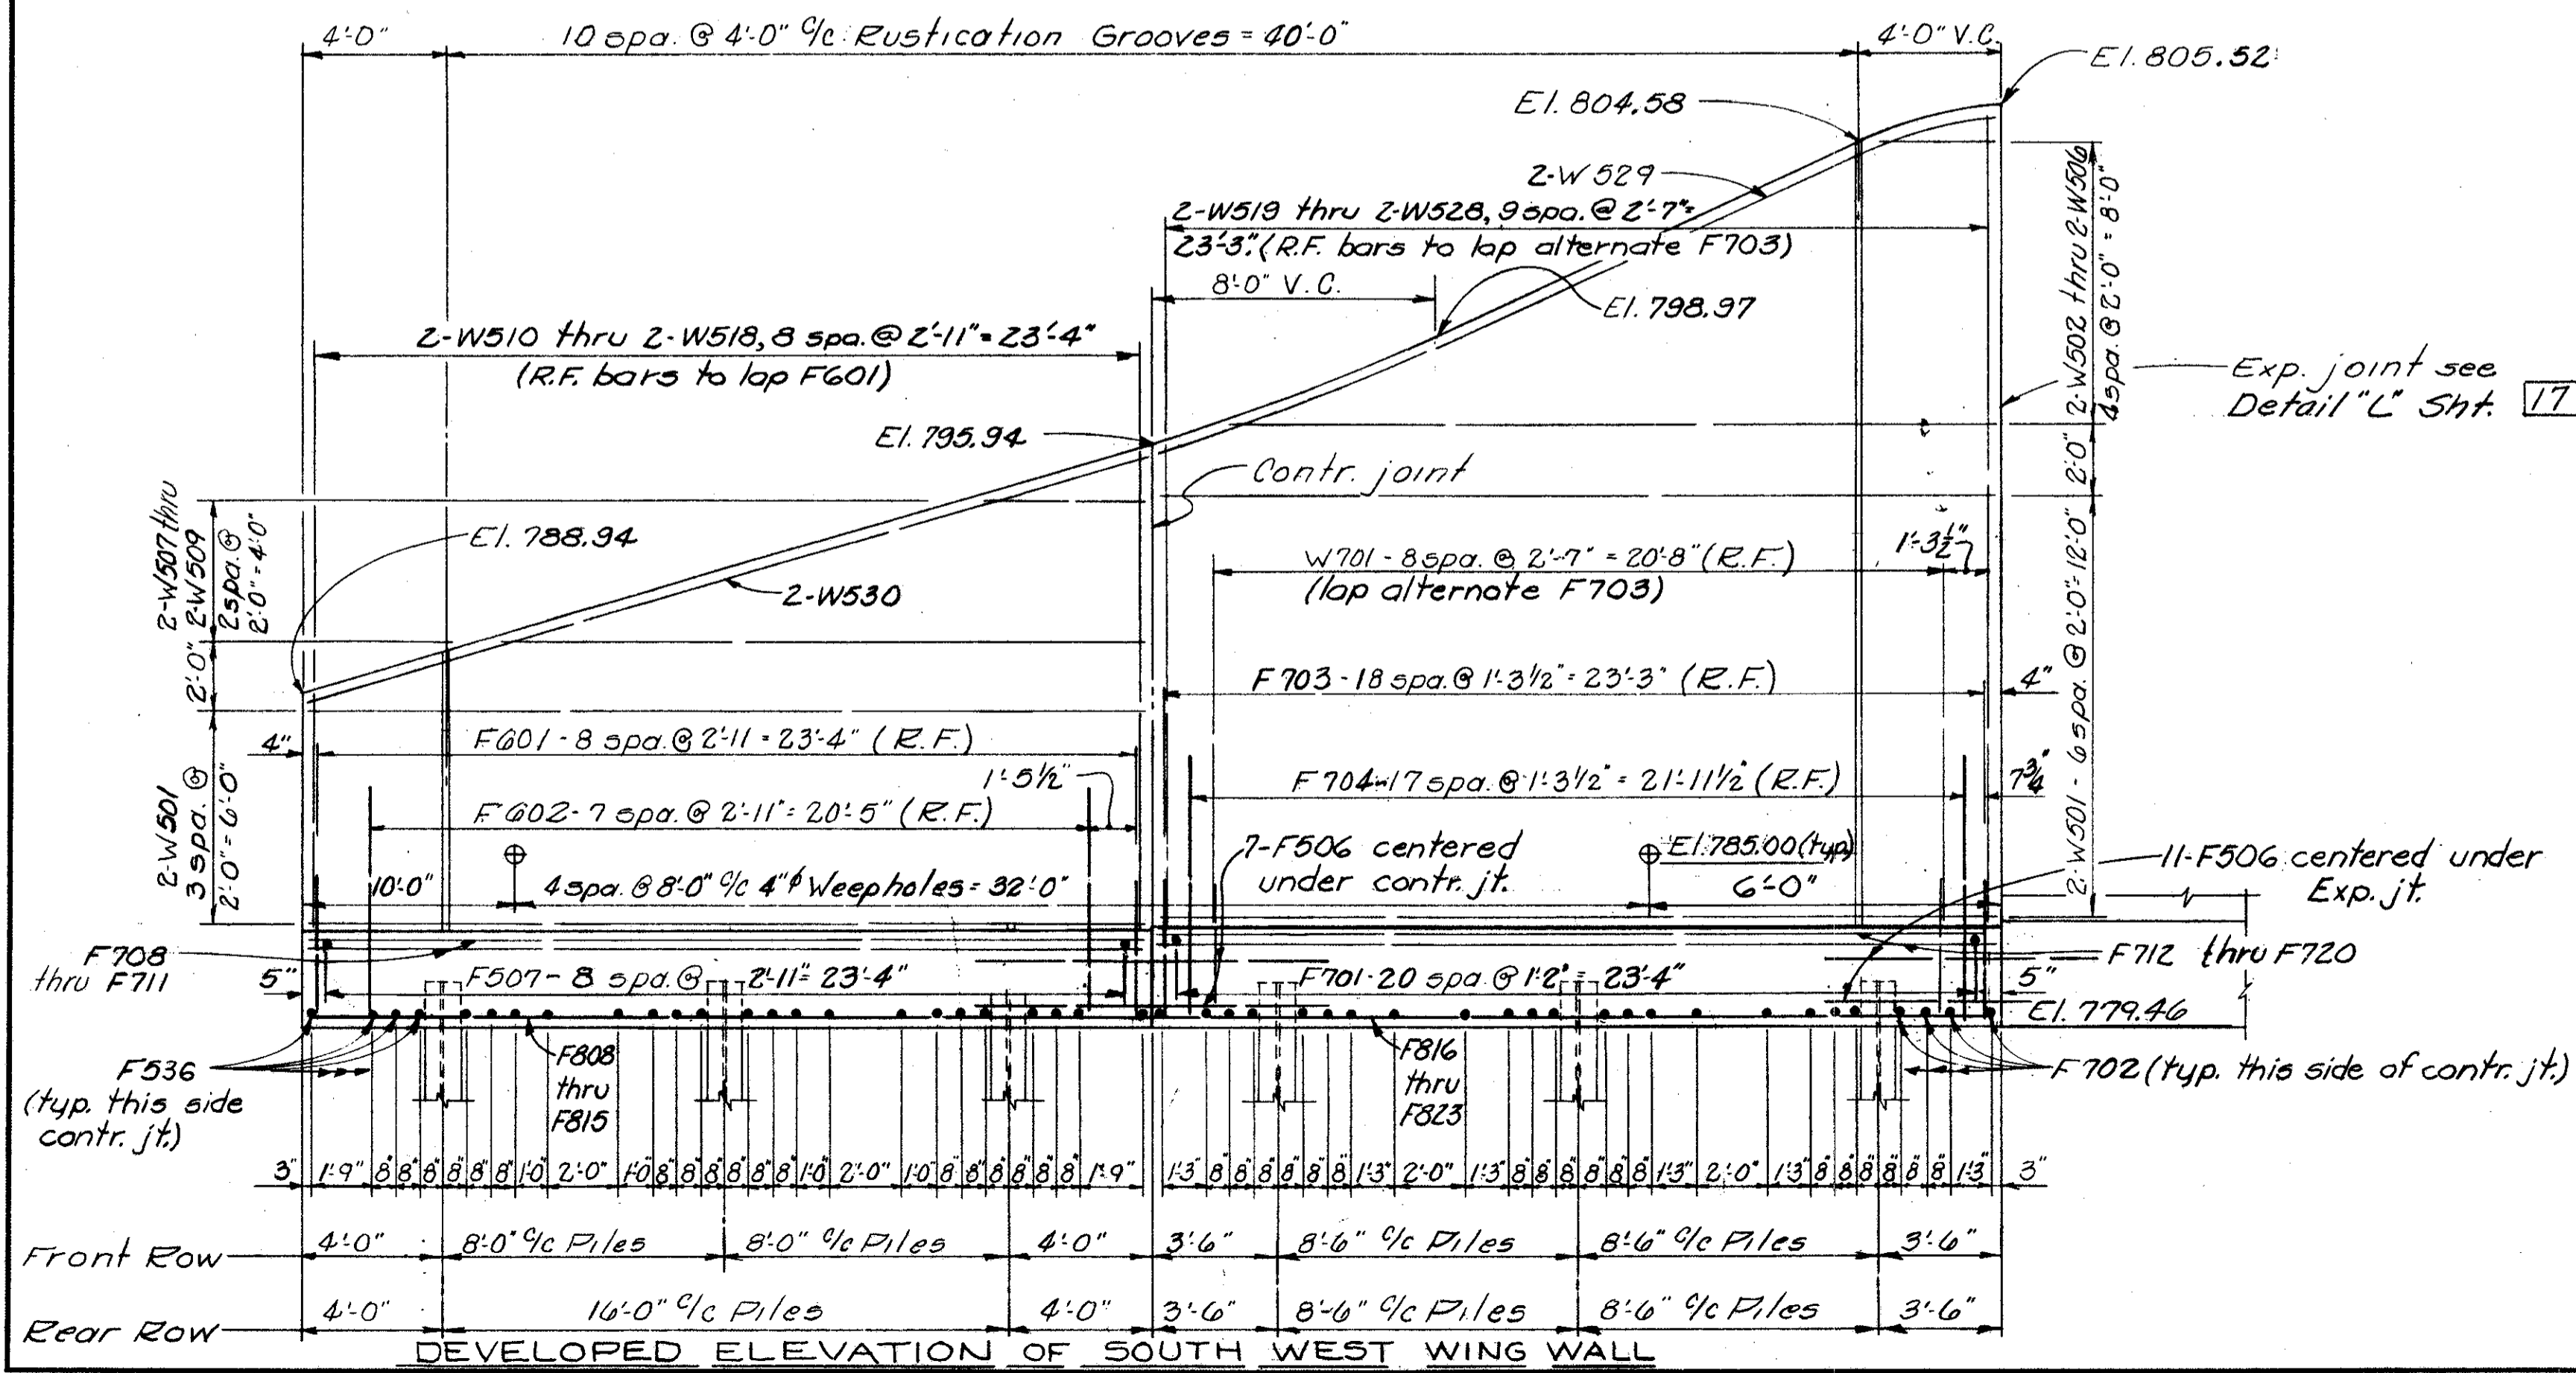 4'-0"
10 spa. @ 4'-0" c/c Rustication Grooves = 40'-0"
4'-0" V.C.
El. 805.52
El. 804.58
2-W529
2-W519 thru 2-W528, 9 spa. @ 2'-7" =
23'-3". (R.F. bars to lap alternate F703)
8'-0" V.C.
El. 798.97
2-W502 thru 2-W506
4 spa. @ 2'-0" = 8'-0"
2-W510 thru 2-W518, 8 spa. @ 2'-11" = 23'-4"
(R.F. bars to lap F601)
Exp. joint see
Detail "L" Sht. 17
El. 795.94
Contr. joint
2'-0"
2-W507 thru
2-W509
2 spa. @
2'-0" = 4'-0"
El. 788.94
2-W530
W701 - 8 spa. @ 2'-7" = 20'-8" (R.F.)
(lap alternate F703)
1'-3½"
2-W501 - 6 spa. @ 2'-0" = 12'-0"
2'-0"
F703 - 18 spa. @ 1'-3 1/2" = 23'-3" (R.F.)
4"
4"
F601 - 8 spa. @ 2'-11 = 23'-4" (R.F.)
1'-5 1/2"
F704 - 17 spa. @ 1'-3 1/2" = 21'-11 1/2" (R.F.)
7 3/4"
2-W501
3 spa. @
2'-0" = 6'-0"
F602 - 7 spa. @ 2'-11" = 20'-5" (R.F.)
7-F506 centered
under contr. jt.
El. 785.00 (typ.)
11-F506 centered under
Exp. jt.
10'-0"
4 spa. @ 8'-0" c/c 4"ϕ Weepholes = 32'-0"
6'-0"
F708
thru F711
F712 thru F720
5"
F507 - 8 spa. @ 2'-11" = 23'-4"
F701 - 20 spa. @ 1'-2" = 23'-4"
5"
El. 779.46
F536
(typ. this side
contr. jt.)
F808
thru
F815
F816
thru
F823
F702 (typ. this side of contr. jt.)
3" 1'-9" 8" 8" 8" 8" 8" 8" 1'-0" 2'-0" 1'-0" 8" 8" 8" 8" 8" 8" 1'-0" 2'-0" 1'-0" 8" 8" 8" 8" 8" 8" 1'-9" 1'-3" 8" 8" 8" 8" 8" 8" 1'-3" 2'-0" 1'-3" 8" 8" 8" 8" 8" 8" 1'-3" 2'-0" 1'-3" 8" 8" 8" 8" 8" 8" 1'-3" 3"
Front Row 4'-0" 8'-0" c/c Piles 8'-0" c/c Piles 4'-0" 3'-6" 8'-6" c/c Piles 8'-6" c/c Piles 3'-6"
Rear Row 4'-0" 16'-0" c/c Piles 4'-0" 3'-6" 8'-6" c/c Piles 8'-6" c/c Piles 3'-6"
DEVELOPED ELEVATION OF SOUTH WEST WING WALL